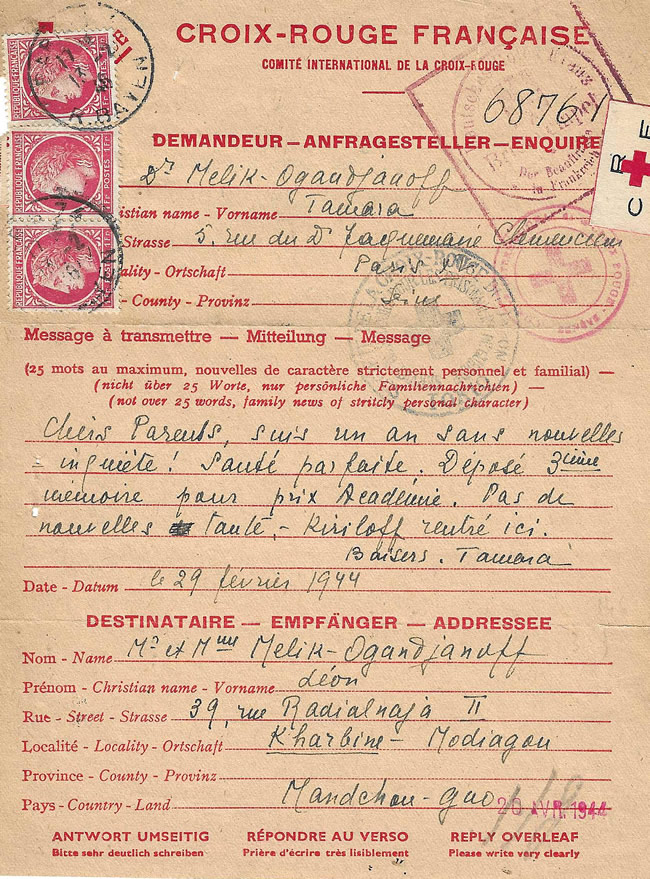 CROIX-ROUGE FRANÇAISE
COMITÉ INTERNATIONAL DE LA CROIX-ROUGE
68761
C R E
DEMANDEUR — ANFRAGESTELLER — ENQUIRE
Dr Melik-Ogandjanoff
Christian name - Vorname Tamara
Strasse 5, rue du Dr Jacquemaire Clemenceau
Locality - Ortschaft Paris
- County - Provinz Seine
Message à transmettre — Mitteilung — Message
(25 mots au maximum, nouvelles de caractère strictement personnel et familial) —
(nicht über 25 Worte, nur persönliche Familiennachrichten) —
(not over 25 words, family news of strictly personal character)
Chers Parents, suis un an sans nouvelles
inquiète! Santé parfaite. Déposé 3ième
mémoire pour prix Académie. Pas de
nouvelles Tante, - Kiriloff rentré ici.
Baisers. Tamara
Date - Datum le 29 février 1944
DESTINATAIRE — EMPFÄNGER — ADDRESSEE
Nom - Name Mr et Mme Melik-Ogandjanoff
Prénom - Christian name - Vorname Léon
Rue - Street - Strasse 39, rue Radialnaja II
Localité - Locality - Ortschaft Kharbine - Modiagou
Province - County - Provinz
Pays - Country - Land Mandchou-Guo
20 AVR. 1944
ANTWORT UMSEITIG RÉPONDRE AU VERSO REPLY OVERLEAF
Bitte sehr deutlich schreiben Prière d'écrire très lisiblement Please write very clearly
REPUBLIQUE FRANÇAISE
1F POSTES 1F